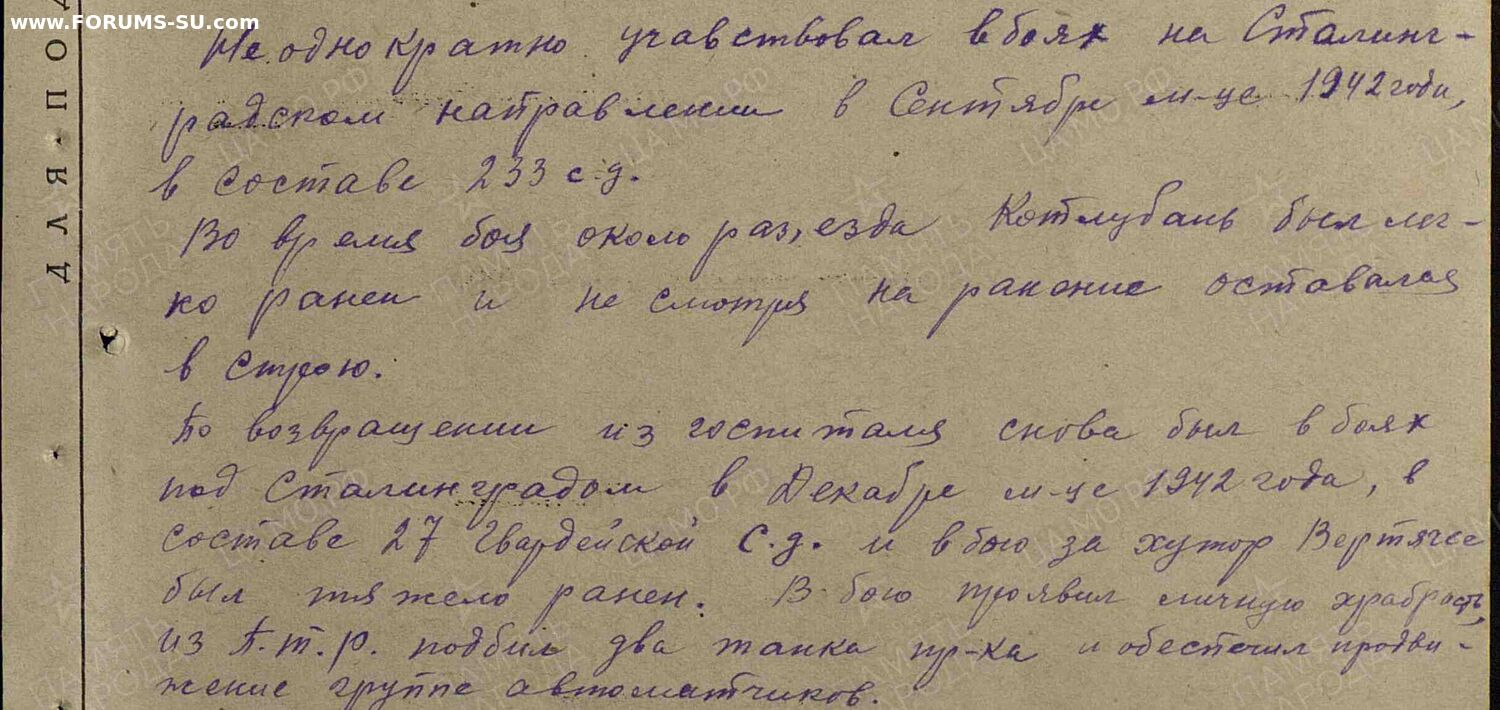 www.FORUMS-SU.com
ДЛЯ ПОД
Неоднократно учавствовал в боях на Сталинг-
радском направлении в Сентябре м-це 1942 годи,
в составе 233 с.д.
Во время боя около раз,езда Котлубань был лег-
ко ранен и не смотря на ранение оставался
в строю.
По возвращении из госпиталя снова был в боях
под Сталинградом в Декабре м-це 1942 года, в
составе 27 Гвардейской С.д. и в бою за хутор Вертячее
был тяжело ранен. В бою проявил личную храбрость,
из П.т.р. подбил два танка пр-ка и обеспечил продви-
жение группе автоматчиков.
ПАМЯТЬ
НАРОДА
ЦАМО.РФ